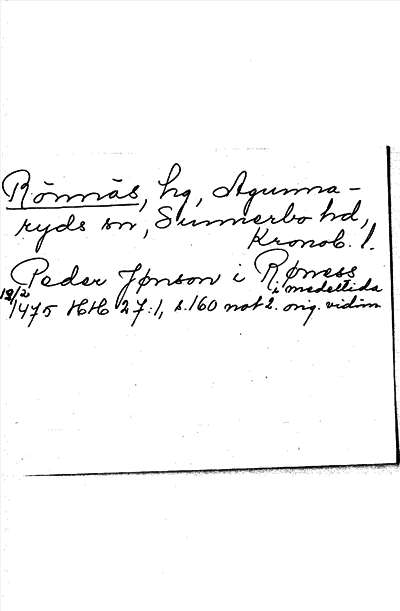 Rönnäs, hg, Agunna-
ryds sn, Sunnerbo hd,
Kronob. l.
Peder Jønson i Røness
i medeltida
12/2 1475 HH 27:1, s.160 not 2. orig. vidim